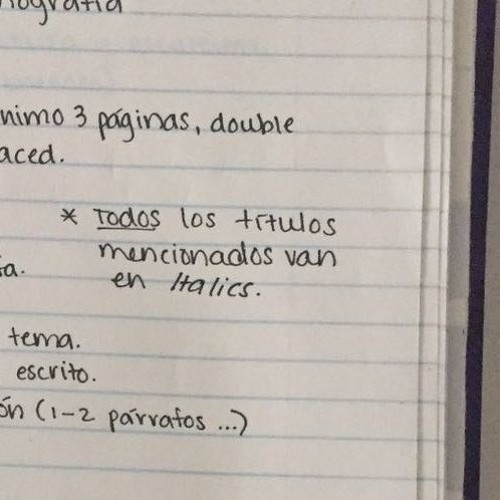 nimo 3 páginas, double
aced.
* Todos los títulos
mencionados van
en Italics.
tema.
escrito.
ón (1-2 párrafos ...)